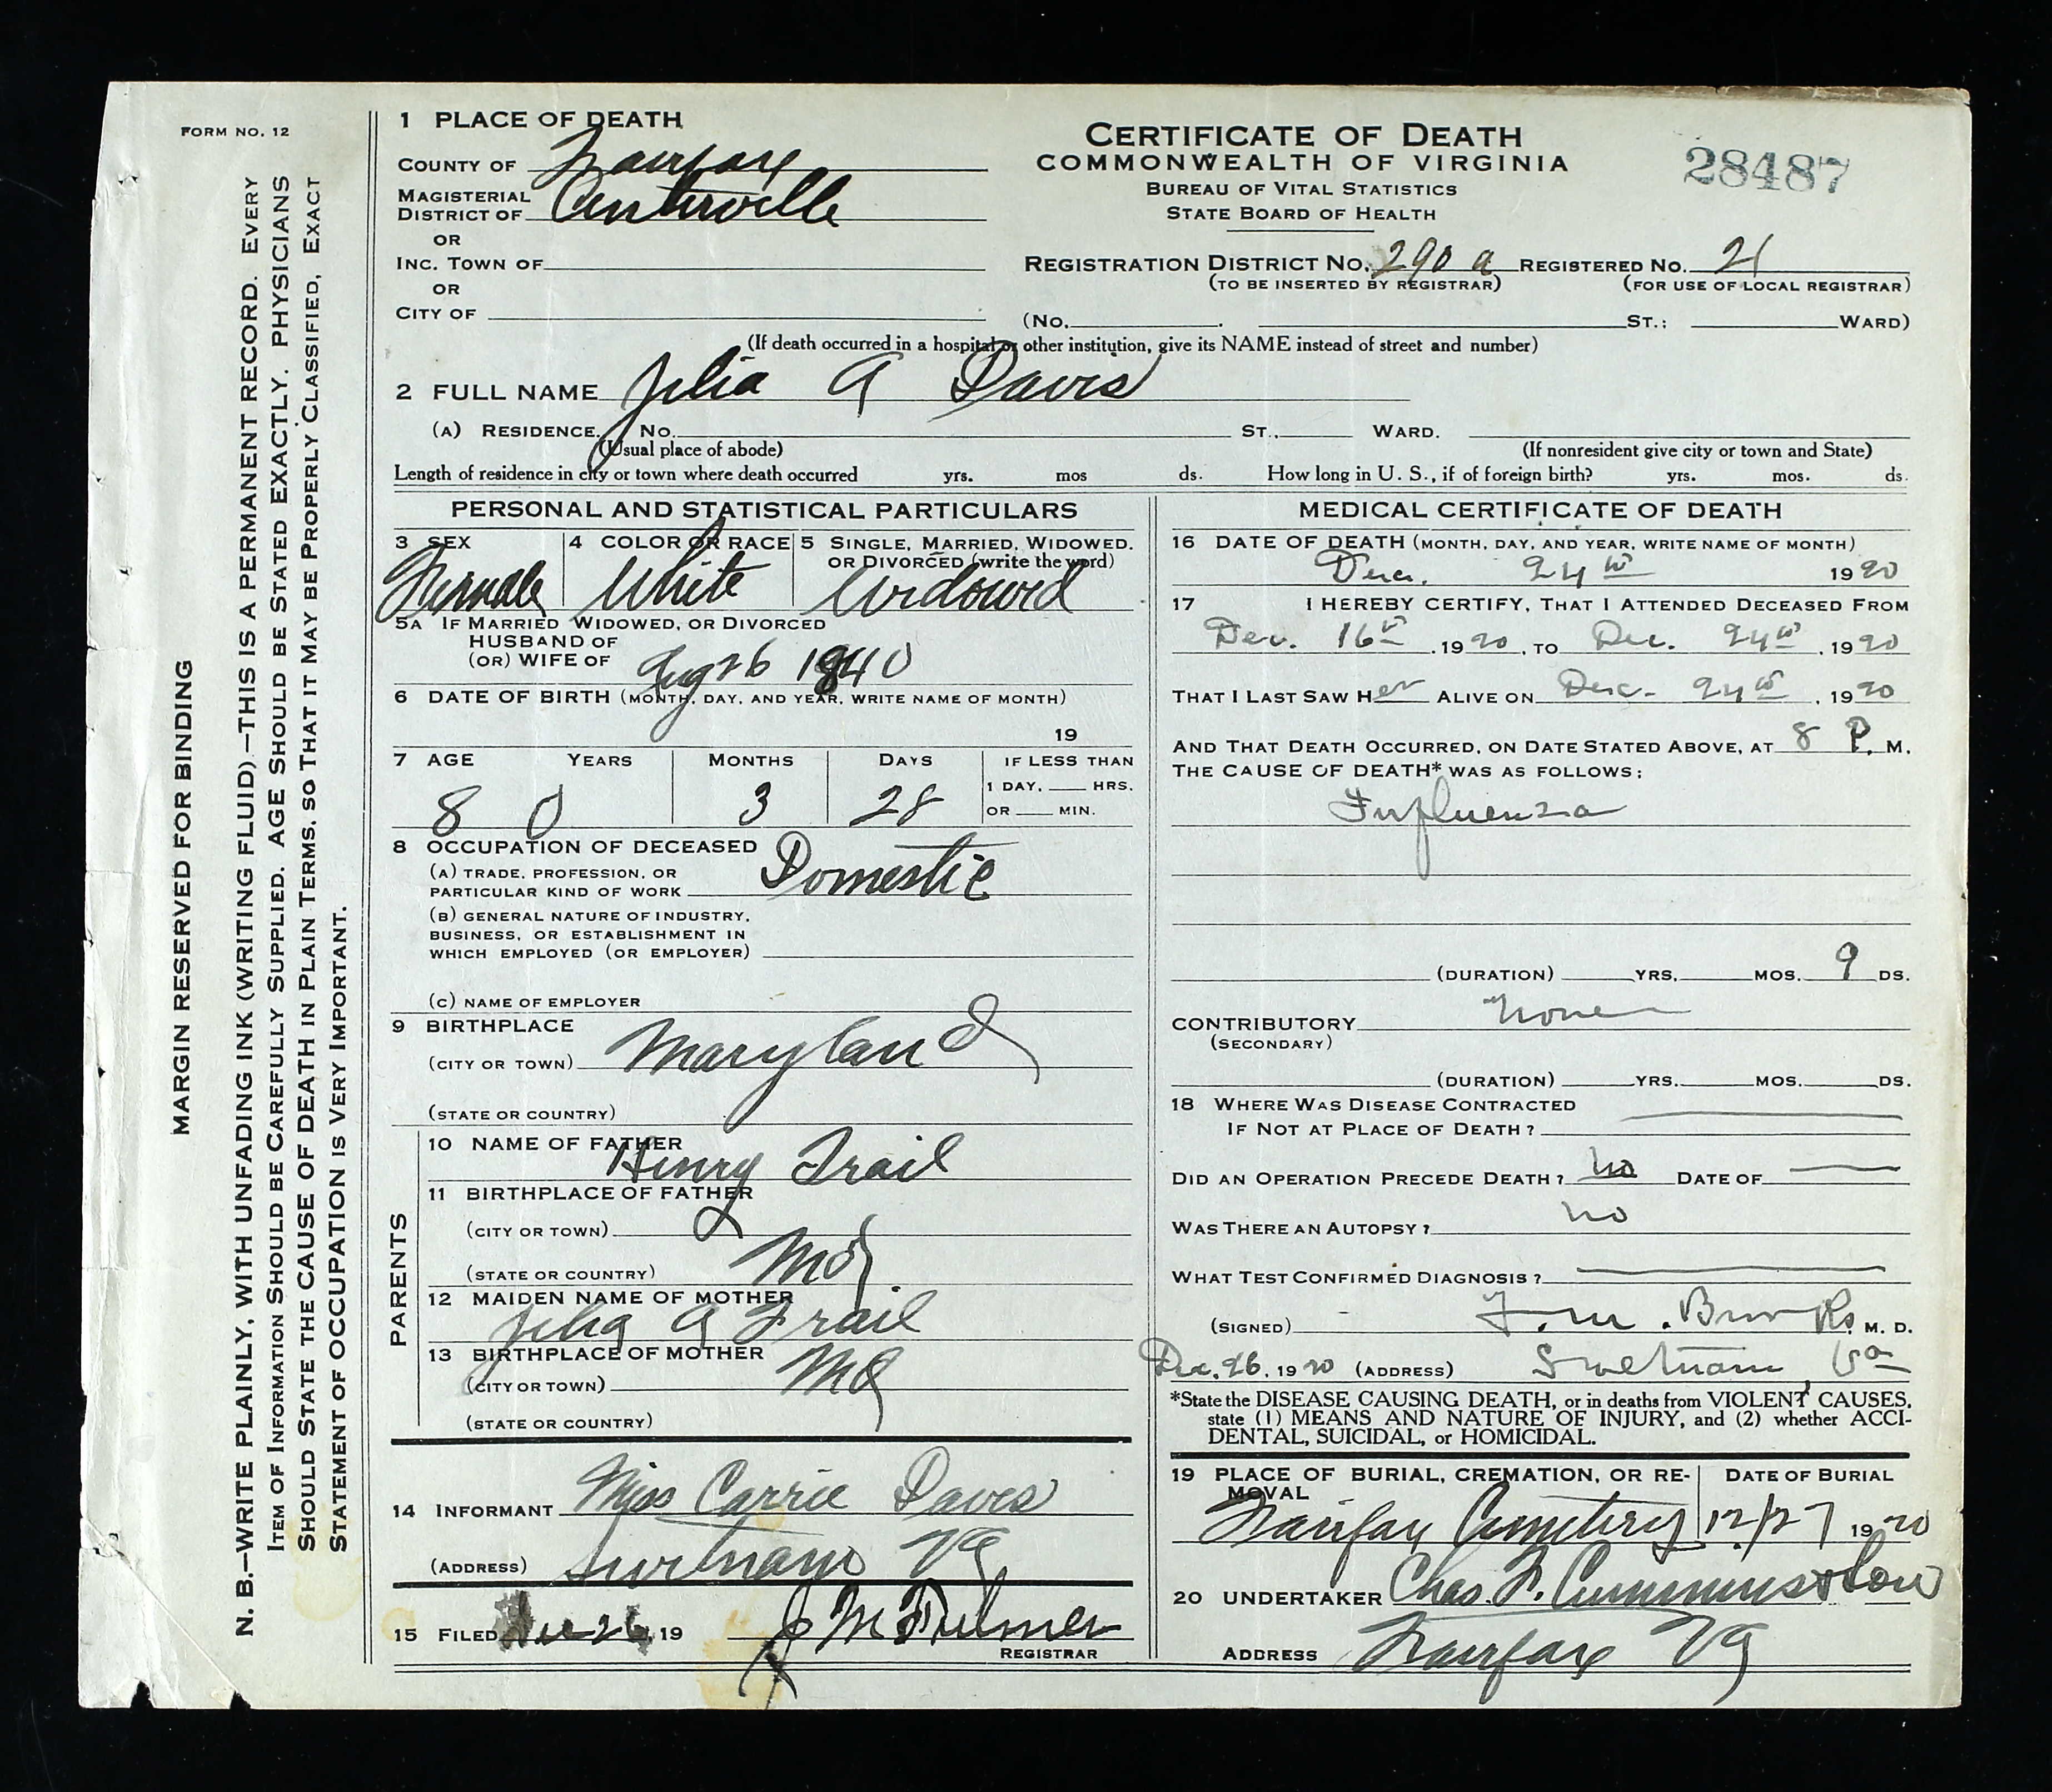 FORM NO. 12
MARGIN RESERVED FOR BINDING
N. B.—WRITE PLAINLY, WITH UNFADING INK (WRITING FLUID).—THIS IS A PERMANENT RECORD. EVERY
ITEM OF INFORMATION SHOULD BE CAREFULLY SUPPLIED. AGE SHOULD BE STATED EXACTLY. PHYSICIANS
SHOULD STATE THE CAUSE OF DEATH IN PLAIN TERMS, SO THAT IT MAY BE PROPERLY CLASSIFIED. EXACT
STATEMENT OF OCCUPATION IS VERY IMPORTANT.
1 PLACE OF DEATH
COUNTY OF Fairfax
MAGISTERIAL DISTRICT OF Centerville
OR
INC. TOWN OF
OR
CITY OF
CERTIFICATE OF DEATH
COMMONWEALTH OF VIRGINIA
BUREAU OF VITAL STATISTICS
STATE BOARD OF HEALTH
28487
REGISTRATION DISTRICT NO. 290 a REGISTERED NO. 21
(TO BE INSERTED BY REGISTRAR) (FOR USE OF LOCAL REGISTRAR)
(NO. ST.: WARD)
(If death occurred in a hospital or other institution, give its NAME instead of street and number)
2 FULL NAME Julia A Davis
(A) RESIDENCE. NO. ST., WARD.
(Usual place of abode) (If nonresident give city or town and State)
Length of residence in city or town where death occurred yrs. mos ds. How long in U. S., if of foreign birth? yrs. mos. ds.
PERSONAL AND STATISTICAL PARTICULARS
3 SEX 4 COLOR OR RACE 5 SINGLE, MARRIED, WIDOWED.
OR DIVORCED (write the word)
Female White Widowed
5A IF MARRIED WIDOWED, OR DIVORCED
HUSBAND OF
(OR) WIFE OF Aug 26 1840
6 DATE OF BIRTH (MONTH, DAY, AND YEAR, WRITE NAME OF MONTH)
19
7 AGE YEARS MONTHS DAYS IF LESS THAN
1 DAY, HRS.
OR MIN.
80 3 28
8 OCCUPATION OF DECEASED
(A) TRADE, PROFESSION, OR
PARTICULAR KIND OF WORK Domestic
(B) GENERAL NATURE OF INDUSTRY,
BUSINESS, OR ESTABLISHMENT IN
WHICH EMPLOYED (OR EMPLOYER)
(C) NAME OF EMPLOYER
9 BIRTHPLACE
(CITY OR TOWN) Maryland
(STATE OR COUNTRY)
PARENTS
10 NAME OF FATHER
Henry Trail
11 BIRTHPLACE OF FATHER
(CITY OR TOWN)
(STATE OR COUNTRY) Md
12 MAIDEN NAME OF MOTHER
Julia A Trail
13 BIRTHPLACE OF MOTHER
(CITY OR TOWN) Md
(STATE OR COUNTRY)
14 INFORMANT Miss Carrie Davis
(ADDRESS) Swetnam Va
15 FILED Dec 26, 19
REGISTRAR
MEDICAL CERTIFICATE OF DEATH
16 DATE OF DEATH (MONTH, DAY, AND YEAR, WRITE NAME OF MONTH)
Dec. 24th 1920
17 I HEREBY CERTIFY, THAT I ATTENDED DECEASED FROM
Dec. 16th, 1920, TO Dec. 24th, 1920
THAT I LAST SAW HER ALIVE ON Dec. 24th, 1920
AND THAT DEATH OCCURRED, ON DATE STATED ABOVE, AT 8 P. M.
THE CAUSE OF DEATH* WAS AS FOLLOWS:
Influenza
(DURATION) YRS. MOS. 9 DS.
CONTRIBUTORY None
(SECONDARY)
(DURATION) YRS. MOS. DS.
18 WHERE WAS DISEASE CONTRACTED
IF NOT AT PLACE OF DEATH?
DID AN OPERATION PRECEDE DEATH? no DATE OF
WAS THERE AN AUTOPSY? no
WHAT TEST CONFIRMED DIAGNOSIS?
(SIGNED) F. M. Brooks M. D.
Dec. 26, 1920 (ADDRESS) Swetnam Va
*State the DISEASE CAUSING DEATH, or in deaths from VIOLENT CAUSES,
state (1) MEANS AND NATURE OF INJURY, and (2) whether ACCI-
DENTAL, SUICIDAL, or HOMICIDAL.
19 PLACE OF BURIAL, CREMATION, OR RE-
MOVAL
DATE OF BURIAL
Fairfax Cemetery 12/27 1920
20 UNDERTAKER Chas. F. Cummins & Son
ADDRESS Fairfax Va